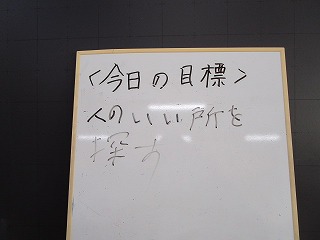 <今日の目標>
人のいい所を
探す